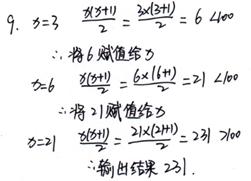 9. x=3 x(x+1)/2 = 3×(3+1)/2 = 6 <100
∴将6赋值给x
x=6 x(x+1)/2 = 6×(6+1)/2 = 21 <100
∴将21赋值给x
x=21 x(x+1)/2 = 21×(21+1)/2 = 231 >100
∴输出结果231.